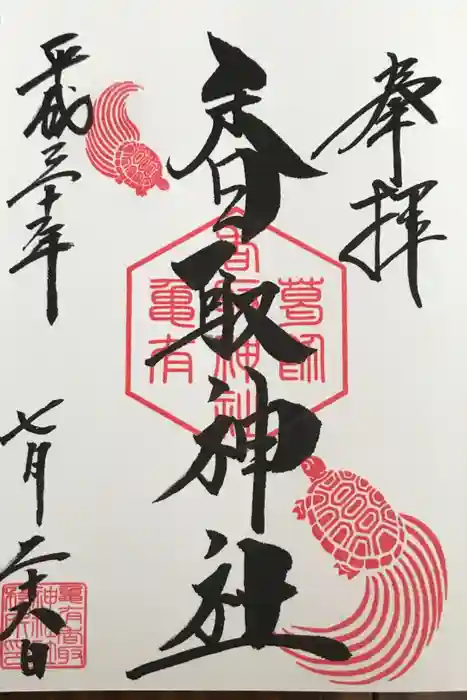 奉拝
香取神社
葛飾
香取神社
亀有
平成三十年
七月二十八日
亀有香取
神社